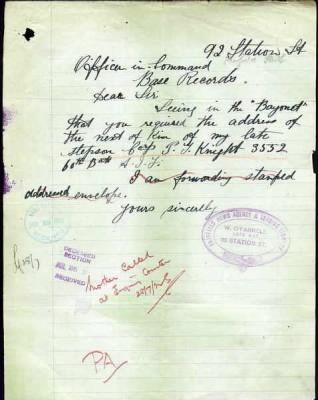 92 Station St
Officer in Command
Base Records.
Dear Sir
Seeing in the "Bayonet"
that you required the address of
the next of Kin of my late
stepson Corp P. J. Knight 3552
60th Batt A.I.F.
I am forwarding stamped
addressed envelope.
Yours sincerely
W. O'FARRELL
92 STATION ST.
SECTION
RECEIVED
Mother Called
at Inquiry Counter
PA